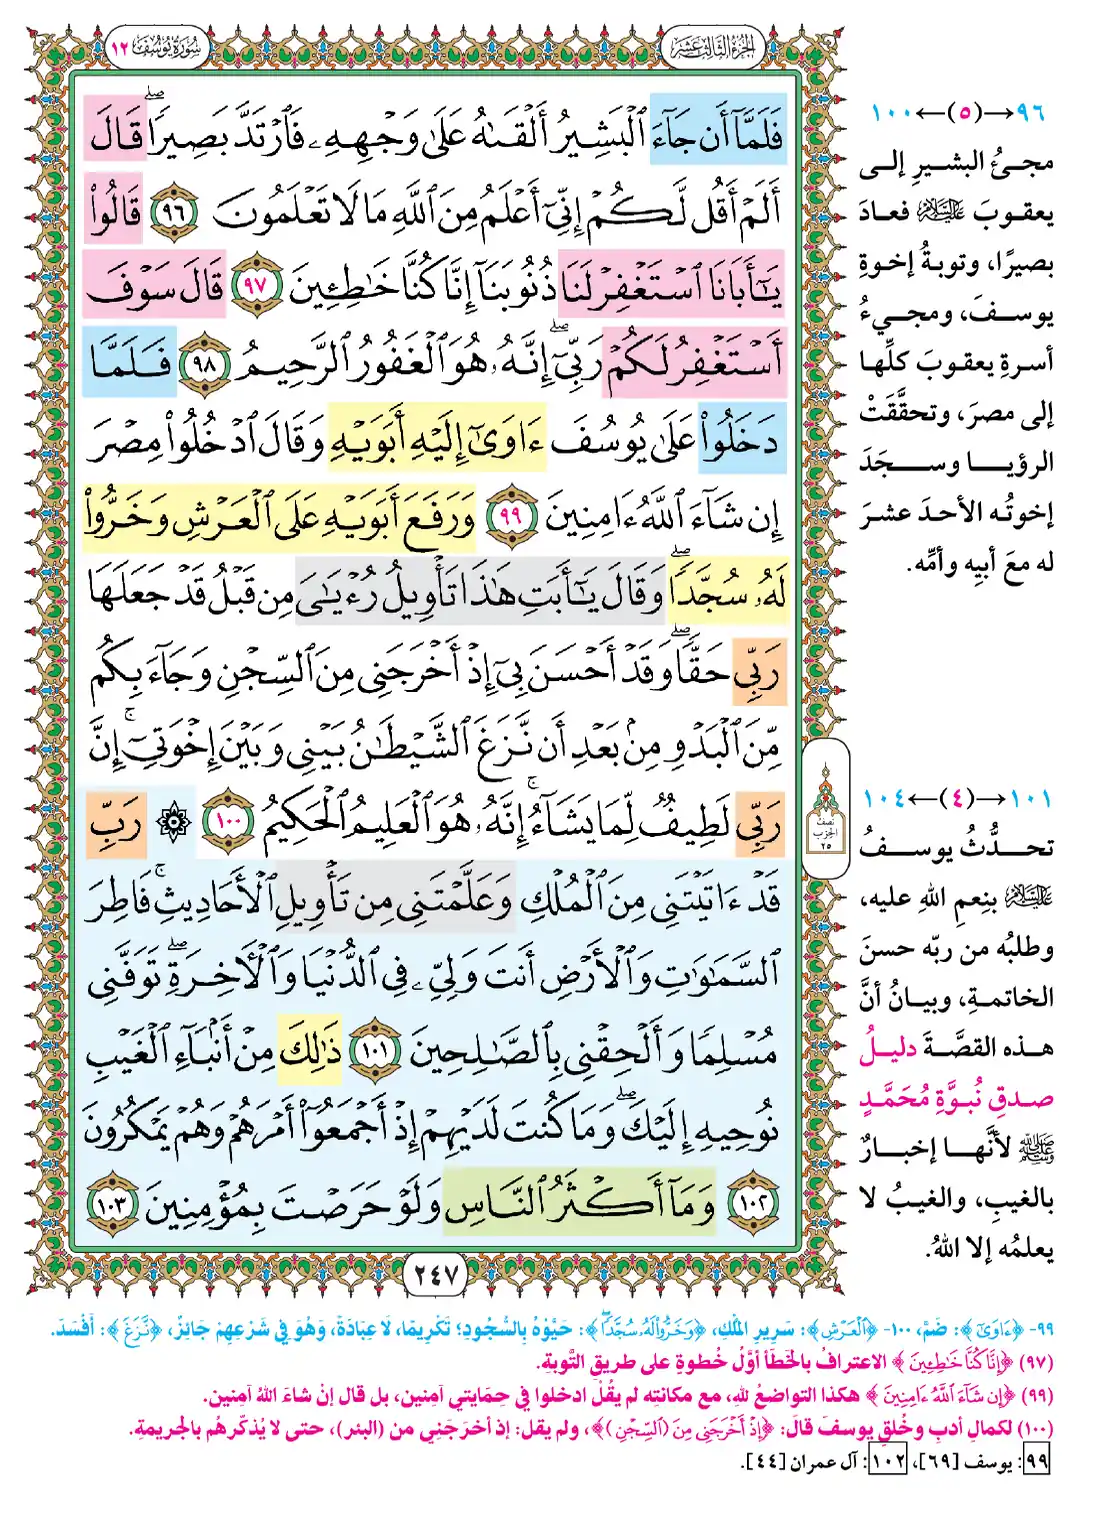 الجزء الثالث عشر
سورة يوسف ١٢
فَلَمَّآ أَن جَآءَ ٱلْبَشِيرُ أَلْقَىٰهُ عَلَىٰ وَجْهِهِۦ فَٱرْتَدَّ بَصِيرًا ۖ قَالَ
أَلَمْ أَقُل لَّكُمْ إِنِّىٓ أَعْلَمُ مِنَ ٱللَّهِ مَا لَا تَعْلَمُونَ ٩٦ قَالُوا۟
يَـٰٓأَبَانَا ٱسْتَغْفِرْ لَنَا ذُنُوبَنَآ إِنَّا كُنَّا خَـٰطِـِٔينَ ٩٧ قَالَ سَوْفَ
أَسْتَغْفِرُ لَكُمْ رَبِّىٓ ۖ إِنَّهُۥ هُوَ ٱلْغَفُورُ ٱلرَّحِيمُ ٩٨ فَلَمَّا
دَخَلُوا۟ عَلَىٰ يُوسُفَ ءَاوَىٰٓ إِلَيْهِ أَبَوَيْهِ وَقَالَ ٱدْخُلُوا۟ مِصْرَ
إِن شَآءَ ٱللَّهُ ءَامِنِينَ ٩٩ وَرَفَعَ أَبَوَيْهِ عَلَى ٱلْعَرْشِ وَخَرُّوا۟
لَهُۥ سُجَّدًا ۖ وَقَالَ يَـٰٓأَبَتِ هَـٰذَا تَأْوِيلُ رُءْيَـٰىَ مِن قَبْلُ قَدْ جَعَلَهَا
رَبِّى حَقًّا ۖ وَقَدْ أَحْسَنَ بِىٓ إِذْ أَخْرَجَنِى مِنَ ٱلسِّجْنِ وَجَآءَ بِكُم
مِّنَ ٱلْبَدْوِ مِنۢ بَعْدِ أَن نَّزَغَ ٱلشَّيْطَـٰنُ بَيْنِى وَبَيْنَ إِخْوَتِىٓ ۚ إِنَّ
رَبِّى لَطِيفٌ لِّمَا يَشَآءُ ۚ إِنَّهُۥ هُوَ ٱلْعَلِيمُ ٱلْحَكِيمُ ١٠٠ ۞ رَبِّ
قَدْ ءَاتَيْتَنِى مِنَ ٱلْمُلْكِ وَعَلَّمْتَنِى مِن تَأْوِيلِ ٱلْأَحَادِيثِ ۚ فَاطِرَ
ٱلسَّمَـٰوَٰتِ وَٱلْأَرْضِ أَنتَ وَلِىِّۦ فِى ٱلدُّنْيَا وَٱلْـَٔاخِرَةِ ۖ تَوَفَّنِى
مُسْلِمًا وَأَلْحِقْنِى بِٱلصَّـٰلِحِينَ ١٠١ ذَٰلِكَ مِنْ أَنۢبَآءِ ٱلْغَيْبِ
نُوحِيهِ إِلَيْكَ ۖ وَمَا كُنتَ لَدَيْهِمْ إِذْ أَجْمَعُوٓا۟ أَمْرَهُمْ وَهُمْ يَمْكُرُونَ
١٠٢ وَمَآ أَكْثَرُ ٱلنَّاسِ وَلَوْ حَرَصْتَ بِمُؤْمِنِينَ ١٠٣
٢٤٧
٩٦→(٥)←١٠٠
مجئُ البشيرِ إلى
يعقوبَ عليه السلام فعادَ
بصيرًا، وتوبةُ إخوةِ
يوسفَ، ومجيءُ
أسرةِ يعقوبَ كلِّها
إلى مصرَ، وتحقَّقَتْ
الرؤيا وسجَدَ
إخوتُه الأحدَ عشرَ
له معَ أبيِه وأمِّه.
نصف
الحزب
٢٥
١٠١→(٤)←١٠٤
تحدُّثُ يوسفُ
عليه السلام بنِعمِ اللهِ عليه،
وطلبُه من ربِّه حسنَ
الخاتمةِ، وبيانُ أنَّ
هذه القصَّةَ دليلُ
صدقِ نُبوَّةِ مُحَمَّدٍ
ﷺ لأنَّها إخبارٌ
بالغيبِ، والغيبُ لا
يعلمُه إلا اللهُ.
٩٩- ﴿ءَاوَىٰٓ﴾: ضَمَّ، ١٠٠- ﴿ٱلْعَرْشِ﴾: سَرِيرِ المُلْكِ، ﴿وَخَرُّوا۟ لَهُۥ سُجَّدًا ۖ﴾: حَيَّوْهُ بِالسُّجُودِ؛ تَكْرِيمًا، لَا عِبَادَةً، وَهُوَ فِي شَرْعِهِمْ جَائِزٌ، ﴿نَّزَغَ﴾: أَفْسَدَ.
(٩٧) ﴿إِنَّا كُنَّا خَـٰطِـِٔينَ﴾ الاعترافُ بالخطأ أوَّلُ خُطوةٍ على طريقِ التَّوبةِ.
(٩٩) ﴿إِن شَآءَ ٱللَّهُ ءَامِنِينَ﴾ هكذا التواضعُ للهِ، مع مكانتِه لم يقُلْ ادخلوا في حِمَايتي آمِنين، بل قال إنْ شاءَ اللهُ آمِنين.
(١٠٠) لكمالِ أدبِ وخُلقِ يوسفَ قالَ: ﴿إِذْ أَخْرَجَنِى مِنَ (ٱلسِّجْنِ)﴾، ولم يقل: إذ أخرَجَنِي من (البئر)، حتى لا يُذكِّرهُم بالجريمةِ.
٩٩: يوسف [٦٩]، ١٠٢: آل عمران [٤٤].